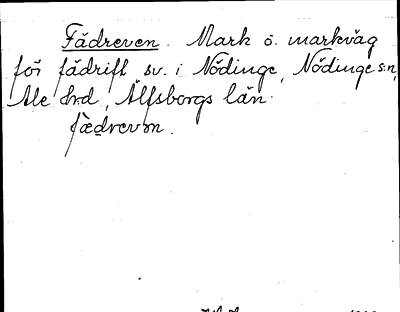 Fädreven. Mark o. markväg
för fädrift sv. i Nödinge, Nödinge s:n,
Ale hrd, Älfsborgs län.
fædrevən.